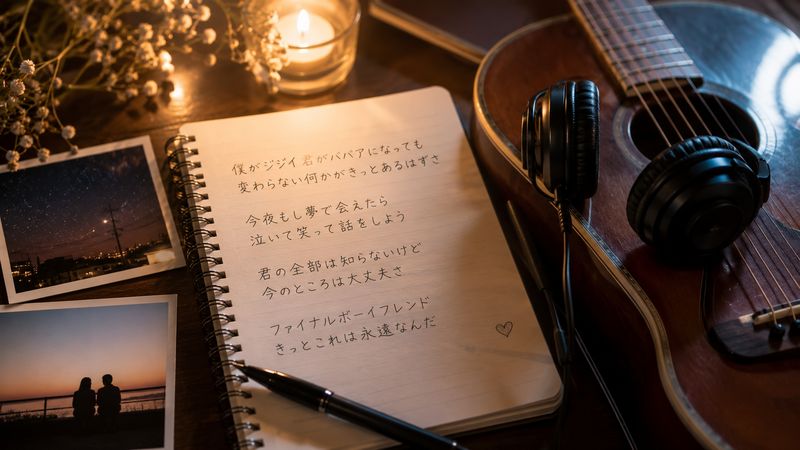 僕がジジイ君がババアになっても
変わらない何かがきっとあるはずさ
今夜もし夢で会えたら
泣いて笑って話をしよう
君の全部は知らないけど
今のところは大丈夫さ
ファイナルボーイフレンド
きっとこれは永遠なんだ